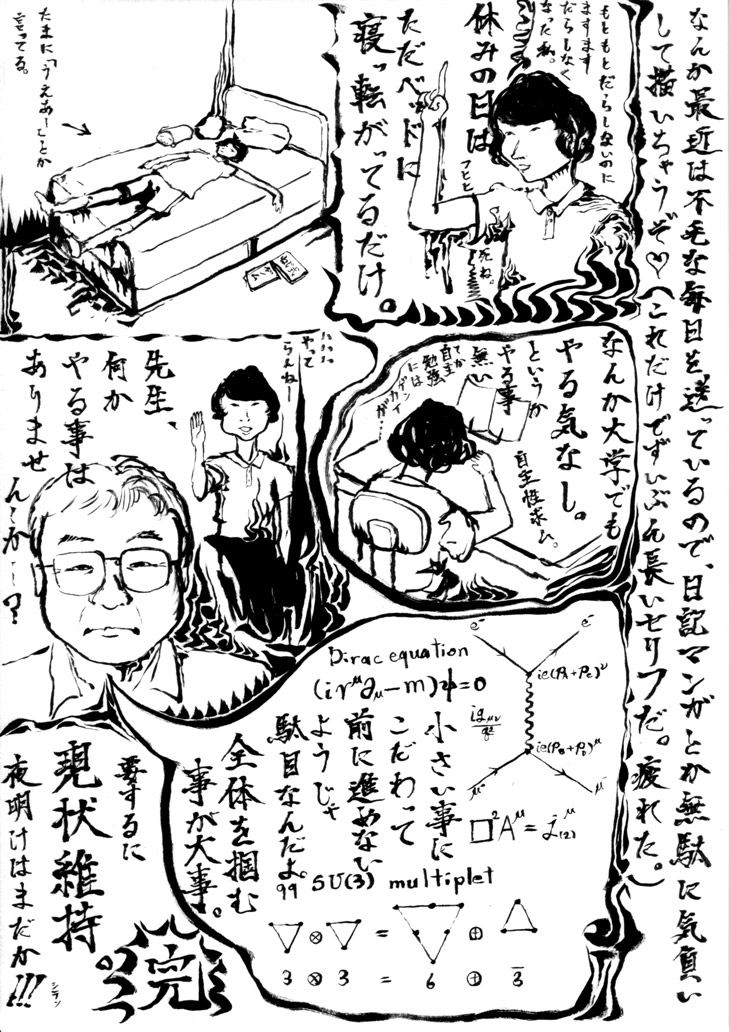 なんか最近は不毛な毎日を送っているので、日記マンガとか無駄に気負い
して描いちゃうぞ♡(これだけでずいぶん長いセリフだ。疲れた。)
もともとだらしないのに
ますます
だらしなく
なった私。
休みの日は
フヒヒ
死ね。
ただベッドに
寝っ転がってるだけ。
たまに「うえあー」とか
言ってる。
なんか大学でも
やる気なし。
というか
やる事
無い
てか
自主
勉強
には
ゲンカイ
が…
自主性求ム。
ハハハ
やって
らんねー
先生、
何か
やる事は
ありませ
ん〜か〜?
Dirac equation
(iγ^μ∂_μ−m)ψ=0
e⁻ e⁻
ie(P_A+P_C)^ν
ig_μν/q²
ie(P_B+P_D)^μ
μ⁻ μ⁻
□²A^μ=j^μ_(2)
小さい事に
こだわって
前に進めない
ようじゃ
駄目なんだよ。
全体を掴む
事が大事。
99 SU(3) multiplet
⊗ = ⊕
3 ⊗ 3 = 6 ⊕ 3̄
要するに
現状維持
夜明けはまだか!!!
シラン
完